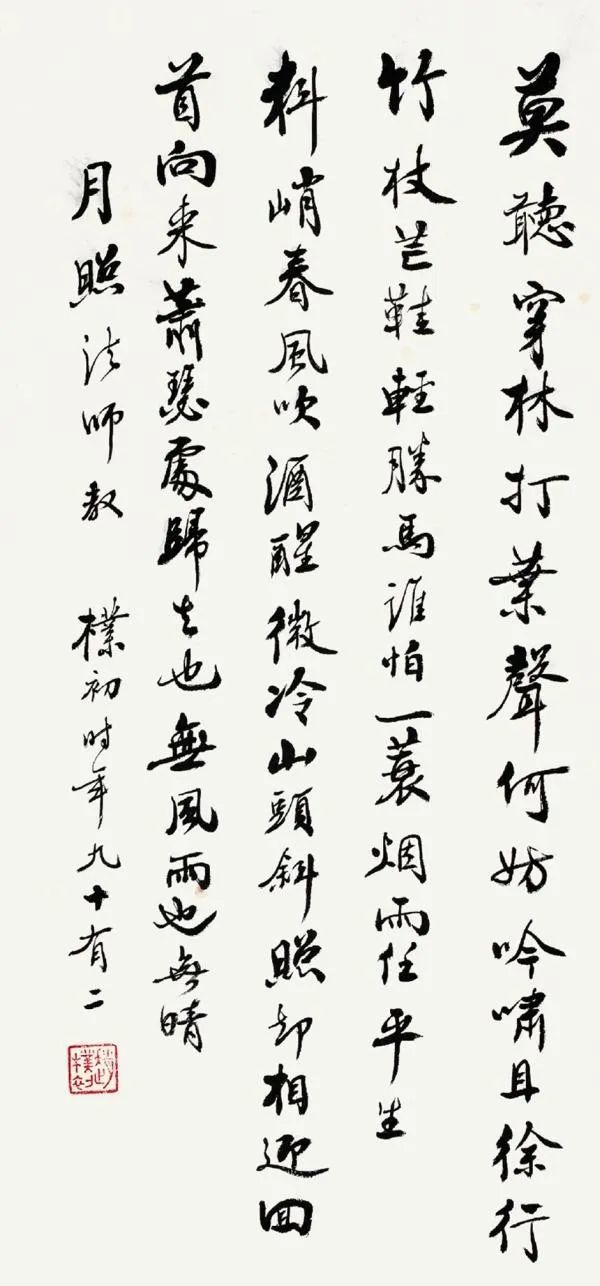 莫聽穿林打葉聲何妨吟嘯且徐行
竹杖芒鞋輕勝馬誰怕一蓑烟雨任平生
料峭春風吹酒醒微冷山頭斜照却相迎回
首向來蕭瑟處歸去也無風雨也無晴
月照法師教 樸初時年九十有二
趙樸初